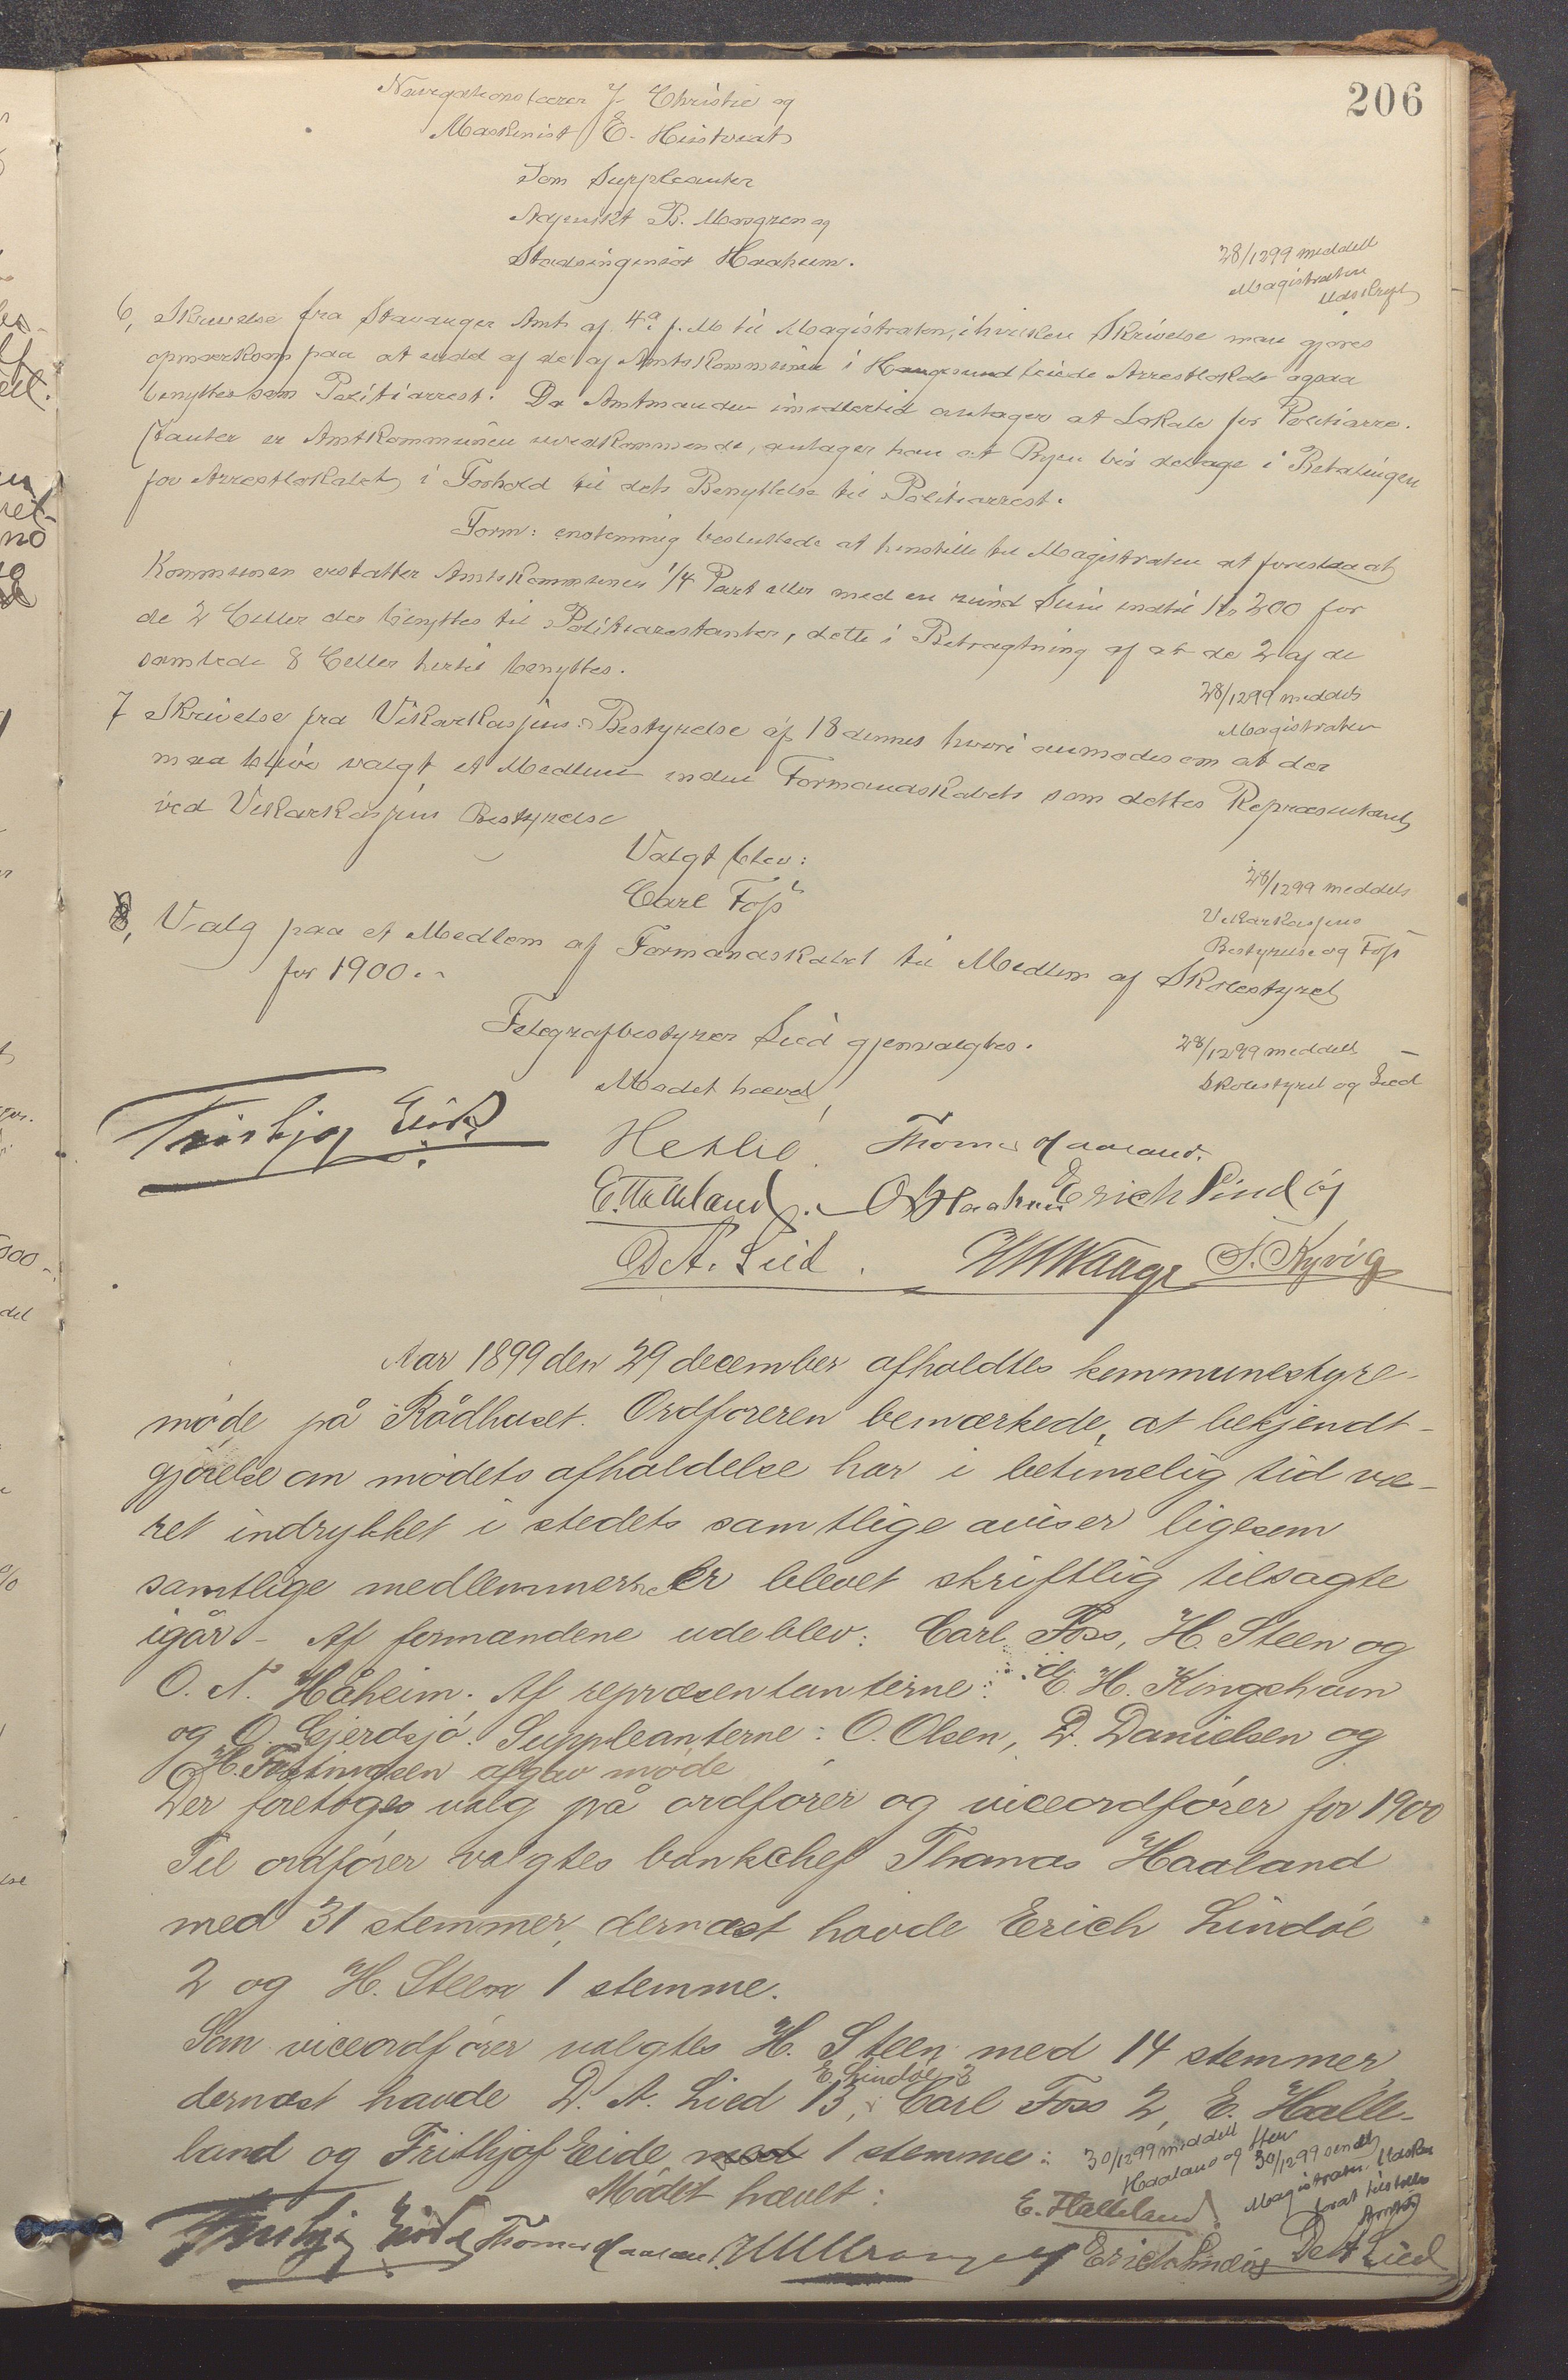 206
Navigationslærer J. Christie og
Maskinist E.
Som Suppleanter
Adjunkt B. Mosgren og
Stadsingeniør Haaheim.
28/12 99 meddelt
Magistraten
Udskrift
6, Skrivelse fra Stavanger Amt af 4de f. M til Magistraten, i hvilken Skrivelse man gjøres
opmærksom paa at endel af de af Amtskommunen i Haugesund leiede Arrestlokale ogsaa
benyttes som Politiarrest. Da Amtmanden imidlertid antager at Lokale for Politiarre-
stanter er Amtkommunen uvedkommende, antager han at Byen bør deltage i Betalingen
for Arrestlokalet i Forhold til dets Benyttelse til Politiarrest.
Form: enstemmig besluttede at henstille til Magistraten at foreslaa at
Kommunen erstatter Amtskommunen 1/4 Part eller med en rund Sum indtil Kr 200 for
de 2 Celler der benyttes til Politiarestanter, dette i Betragtning af at de 2 af de
samlede 8 Celler hertil benyttes.
28/12 99 meddelt
Magistraten
7 Skrivelse fra Vikarkassens Bestyrelse af 18 dennes hvori anmodes om at der
maa blive valgt et Medlem inden Formandskabet som dettes Repræsentant
ved Vikarkassens Bestyrelse
Valgt blev:
Carl Foss
28/12 99 meddelt
Vikarkassens
Bestyrelse og Foss
8, Valg paa et Medlem af Formandskabet til Medlem af Skolestyret
for 1900.
Telegrafbestyrer Lied gjenvalgtes.
28/12 99 meddelt
Skolestyret og Lied
Mødet hævet
Frithjof Eide
Thomas Haaland.
E. Halleland. O N Haaheim Erich Lindøe
D. A. Lied. Waage S. Kyvig
Aar 1899 den 29 december afholdtes kommunestyre-
møde på Rådhuset. Ordføreren bemærkede, at bekjendt-
gjørelse om mødets afholdelse har i betimelig tid væ-
ret indrykket i stedets samtlige aviser ligesom
samtlige medlemmerne er blevet skriftlig tilsagte
igår. – Af formændene udeblev: Carl Foss, H. Steen og
O. N. Håheim. Af repræsentanterne: E. H. Kingshavn
og O. Gjerdsjø. Suppleanterne: O. Olsen, D. Danielsen og
H. afgav møde
Der foretoges valg på ordfører og viceordfører for 1900
Til ordfører valgtes bankchef Thomas Haaland
med 31 stemmer, dernæst havde Erich Lindøe
2 og H. Steen 1 stemme.
Som viceordfører valgtes H. Steen med 14 stemmer
E. Lindøe 3
dernæst havde D. A. Lied 13, Carl Foss 2, E. Halle-
land og Frithjof Eide med 1 stemme:
30/12 99 meddelt
Haaland og Steen
30/12 99 sendt
Magistraten
Mødet hævet:
E. Halleland
Frithjof Eide Thomas Haaland. Erich Lindøe D A Lied